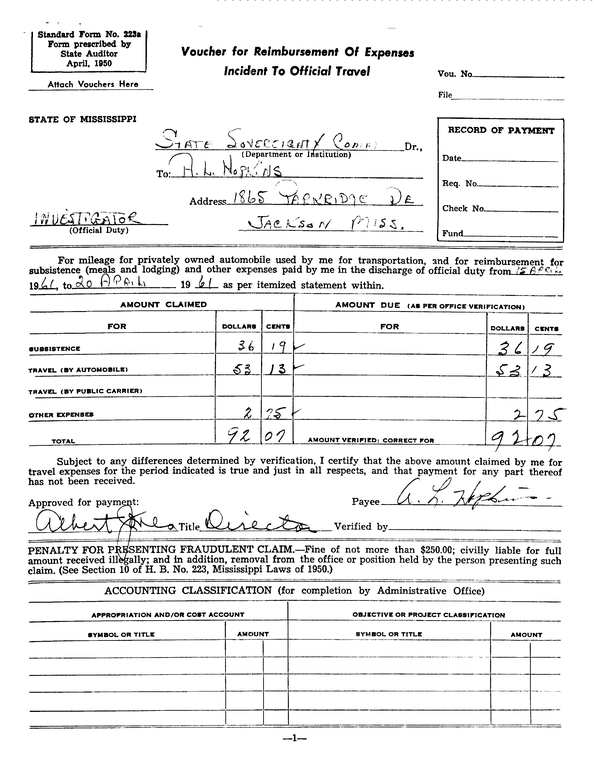 Standard Form No. 223a
Form prescribed by
State Auditor
April, 1950
Attach Vouchers Here
Voucher for Reimbursement Of Expenses
Incident To Official Travel
Vou. No.
File
STATE OF MISSISSIPPI
RECORD OF PAYMENT
Date
Req. No.
Check No.
Fund
STATE SOVEREIGNTY COMM Dr.,
(Department or Institution)
To: A. L. HOPKINS
Address 1865 DR
INVESTIGATOR JACKSON MISS.
(Official Duty)
For mileage for privately owned automobile used by me for transportation, and for reimbursement for
subsistence (meals and lodging) and other expenses paid by me in the discharge of official duty from APRIL
1961, to 20 APRIL 1961 as per itemized statement within.
AMOUNT CLAIMED AMOUNT DUE (AS PER OFFICE VERIFICATION)
FOR DOLLARS CENTS FOR DOLLARS CENTS
SUBSISTENCE 36 19 ✓ 36 19
TRAVEL (BY AUTOMOBILE) 53 13 ✓ 53 13
TRAVEL (BY PUBLIC CARRIER)
OTHER EXPENSES 2 75 ✓ 2 75
TOTAL 92 07 AMOUNT VERIFIED; CORRECT FOR 92 07
Subject to any differences determined by verification, I certify that the above amount claimed by me for
travel expenses for the period indicated is true and just in all respects, and that payment for any part thereof
has not been received.
Payee A. L. Hopkins
Approved for payment:
Albert Jones Title Director Verified by
PENALTY FOR PRESENTING FRAUDULENT CLAIM.—Fine of not more than $250.00; civilly liable for full
amount received illegally; and in addition, removal from the office or position held by the person presenting such
claim. (See Section 10 of H. B. No. 223, Mississippi Laws of 1950.)
ACCOUNTING CLASSIFICATION (for completion by Administrative Office)
APPROPRIATION AND/OR COST ACCOUNT OBJECTIVE OR PROJECT CLASSIFICATION
SYMBOL OR TITLE AMOUNT SYMBOL OR TITLE AMOUNT
—1—